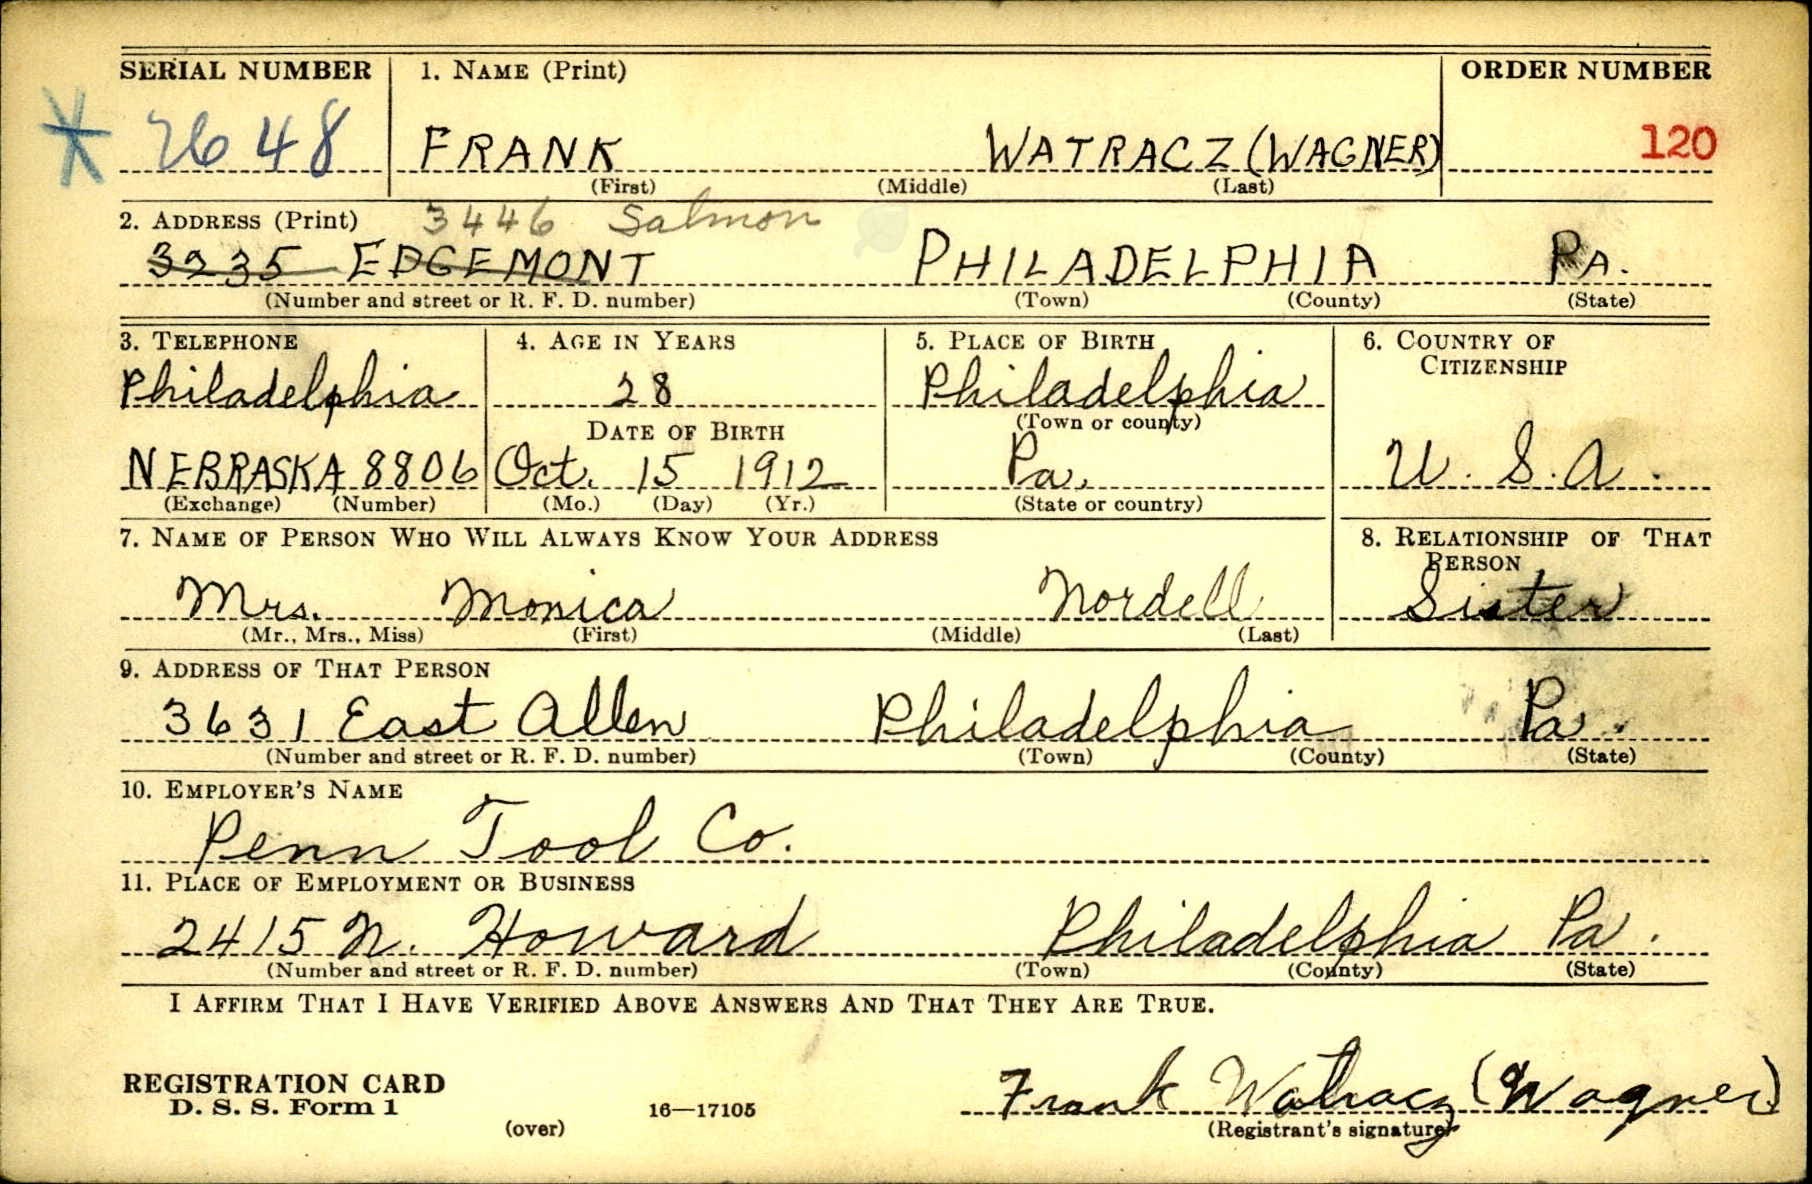 SERIAL NUMBER 1. NAME (Print) ORDER NUMBER
2648 FRANK WATRACZ (WAGNER) 120
(First) (Middle) (Last)
2. ADDRESS (Print) 3446 Salmon
3235 EDGEMONT PHILADELPHIA PA.
(Number and street or R. F. D. number) (Town) (County) (State)
3. TELEPHONE 4. AGE IN YEARS 5. PLACE OF BIRTH 6. COUNTRY OF
CITIZENSHIP
Philadelphia 28 Philadelphia
DATE OF BIRTH (Town or county)
NEBRASKA 8806 Oct. 15 1912 Pa. U.S.A.
(Exchange) (Number) (Mo.) (Day) (Yr.) (State or country)
7. NAME OF PERSON WHO WILL ALWAYS KNOW YOUR ADDRESS 8. RELATIONSHIP OF THAT
PERSON
Mrs. Monica Nordell Sister
(Mr., Mrs., Miss) (First) (Middle) (Last)
9. ADDRESS OF THAT PERSON
3631 East Allen Philadelphia Pa.
(Number and street or R. F. D. number) (Town) (County) (State)
10. EMPLOYER'S NAME
Penn Tool Co.
11. PLACE OF EMPLOYMENT OR BUSINESS
2415 N. Howard Philadelphia Pa.
(Number and street or R. F. D. number) (Town) (County) (State)
I AFFIRM THAT I HAVE VERIFIED ABOVE ANSWERS AND THAT THEY ARE TRUE.
REGISTRATION CARD
D. S. S. Form 1 16—17105 Frank Watracz (Wagner)
(over) (Registrant's signature)